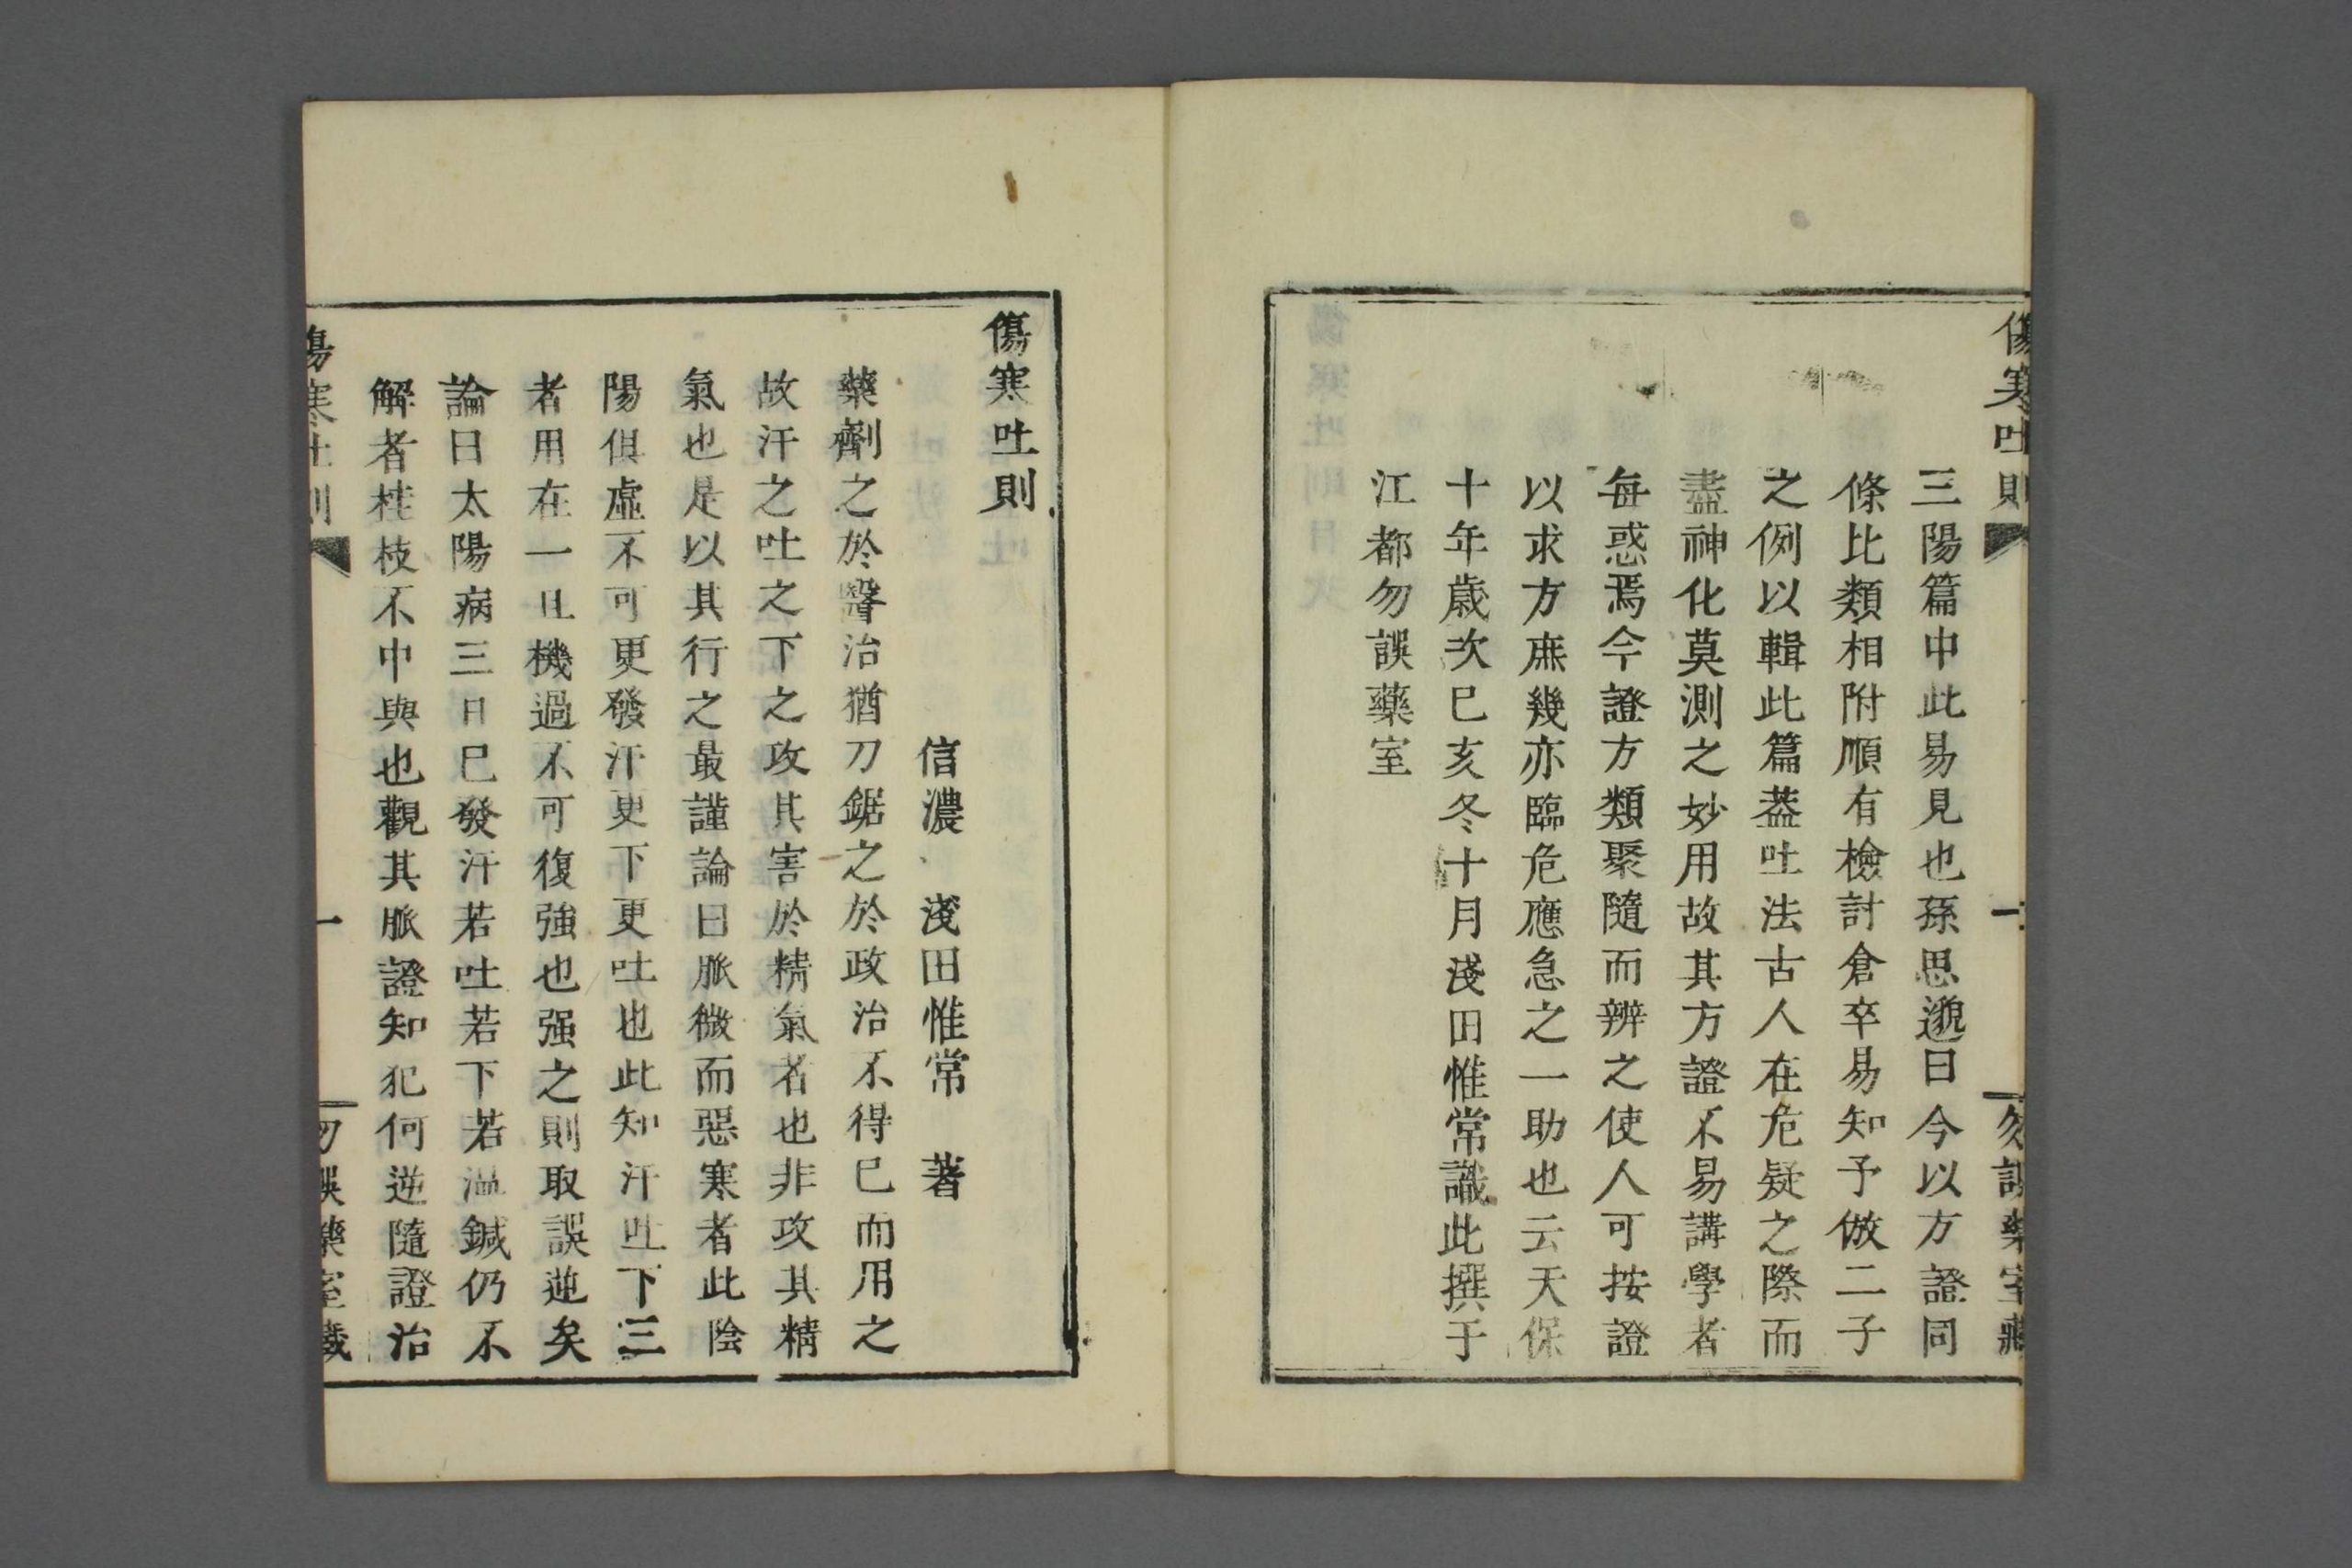 傷寒吐則
一
勿誤藥室藏
三陽篇中此易見也孫思邈曰今以方證同
條比類相附順有檢討倉卒易知予倣二子
之例以輯此篇蓋吐法古人在危疑之際而
盡神化莫測之妙用故其方證不易講學者
每惑焉今證方類聚隨而辨之使人可按證
以求方庶幾亦臨危應急之一助也云天保
十年歲次己亥冬十月淺田惟常識此撰于
江都勿誤藥室
傷寒吐則
信濃 淺田惟常 著
藥劑之於醫治猶刀鋸之於政治不得已而用之
故汗之吐之下之攻其害於精氣者也非攻其精
氣也是以其行之最謹論曰脈微而惡寒者此陰
陽俱虛不可更發汗更下更吐也此知汗吐下三
者用在一旦機過不可復強也强之則取誤逆矣
論曰太陽病三日已發汗若吐若下若溫鍼仍不
解者桂枝不中與也觀其脈證知犯何逆隨證治
傷寒吐則
一
勿誤藥室藏